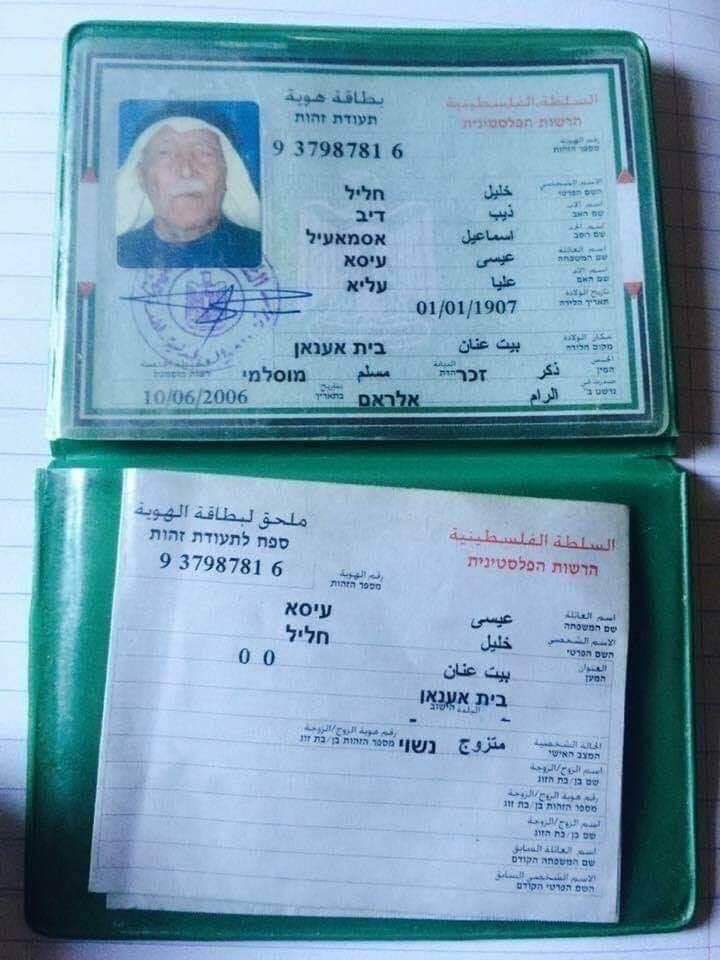 السلطة الفلسطينية بطاقة هوية
הרשות הפלסטינית תעודת זהות
رقم الهوية
מספר הזהות 9 3798781 6
الاسم الشخصي
השם הפרטי خليل חליל
اسم الاب
שם האב ذيب דיב
اسم الجد
שם הסב اسماعيل אסמאעיל
اسم العائلة
שם המשפחה عيسى עיסא
اسم الام
שם האם عليا עליא
تاريخ الولادة
תאריך הלידה 01/01/1907
مكان الولادة
מקום הלידה بيت عنان בית אענאן
الجنس
המין ذكر זכר الديانة הדת مسلم מוסלמי
صدرت في
נרשם ב' الرام אלראם بتاريخ בתאריך 10/06/2006
السلطة الفلسطينية ملحق لبطاقة الهوية
הרשות הפלסטינית ספח לתעודת זהות
رقم الهوية
מספר הזהות 9 3798781 6
اسم العائلة
שם המשפחה عيسى עיסא
الاسم الشخصي
השם הפרטי خليل חליל
العنوان
המען بيت عنان 0 0
בית אענאן
البلدة הישוב
الحالة الشخصية
המצב האישי متزوج נשוי
رقم هوية الزوج/الزوجة
מספר הזהות בן/בת זוג
اسم الزوج/الزوجة
שם בן/בת הזוג
رقم هوية الزوج/الزوجة
מספר הזהות בן/בת זוג
اسم الزوج/الزوجة
שם בן/בת הזוג
اسم العائلة السابق
שם המשפחה הקודם
الاسم الشخصي السابق
השם הפרטי הקודם